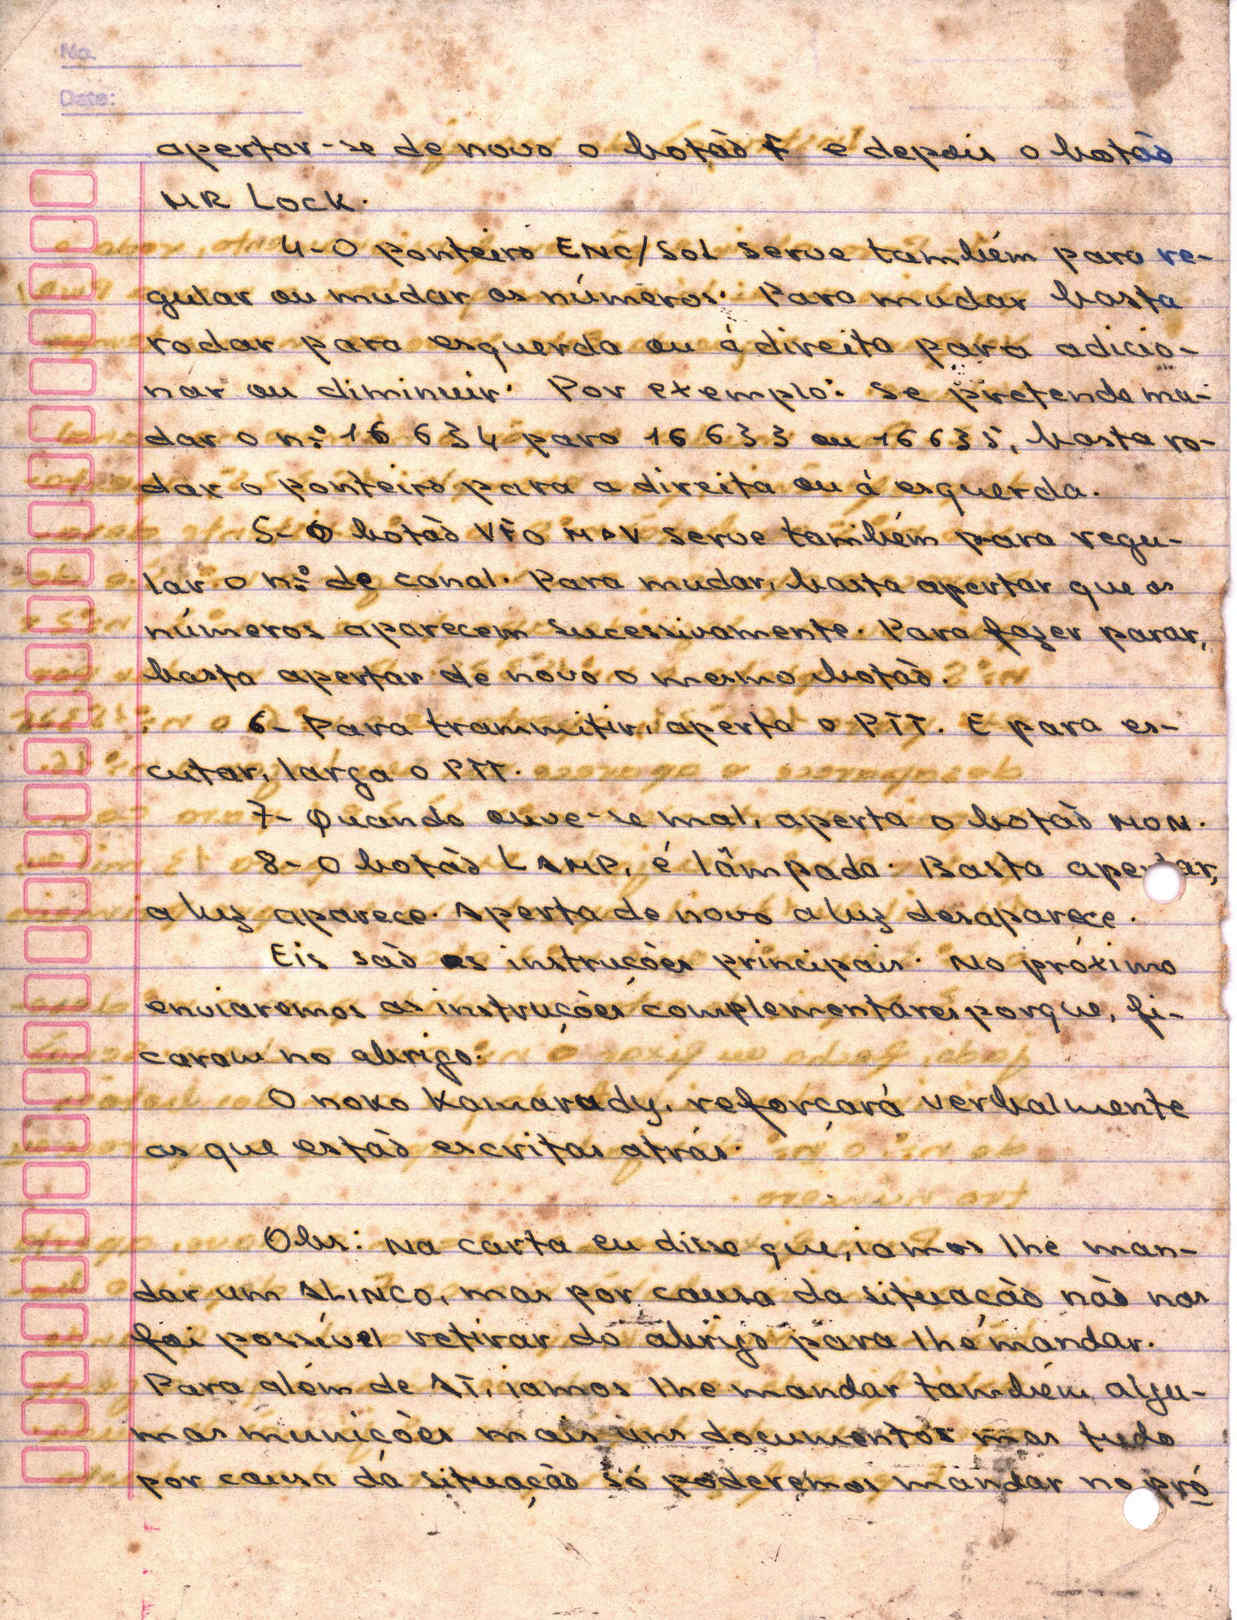 No.
Date:
apertar-se de novo o botão F e depois o botão
MR LOCK.
4-O ponteiro ENC/SOL serve também para re-
gular ou mudar os números. Para mudar basta
rodar para esquerda ou á direita para adicio-
nar ou diminuir. Por exemplo: Se pretende mu-
dar o n.º 16 634 para 16 633 ou 16635, basta ro-
dar o ponteiro para a direita ou á esquerda.
5-O botão VFO MAV serve também para regu-
lar o n.º de canal. Para mudar, basta apertar que os
números aparecem sucessivamente. Para fazer parar,
basta apertar de novo o mesmo botão.
6- Para trammitir, aperta o PTT. E para es-
cutar, larga o PTT.
7- Quando ouve-se mal, aperta o botão MON.
8-O botão LAMP, é lâmpada. Basta apertar,
a luz aparece. Aperta de novo a luz desaparece.
Eis são as instruções principais. No próximo
enviaremos as instruções complementares porque, fi-
caram no abrigo.
O noko Kamarady, reforçará verbalmente
as que estão escritas atrás.
Obs: Na carta eu disse que, iamos lhe man-
dar um ALINCO, mas por causa da situação não nos
foi possível retirar do abrigo para lhe mandar.
Para além de ST, iamos lhe mandar também algu-
mas munições mais uns documentos mas tudo
por causa da situação só poderemos mandar no pró